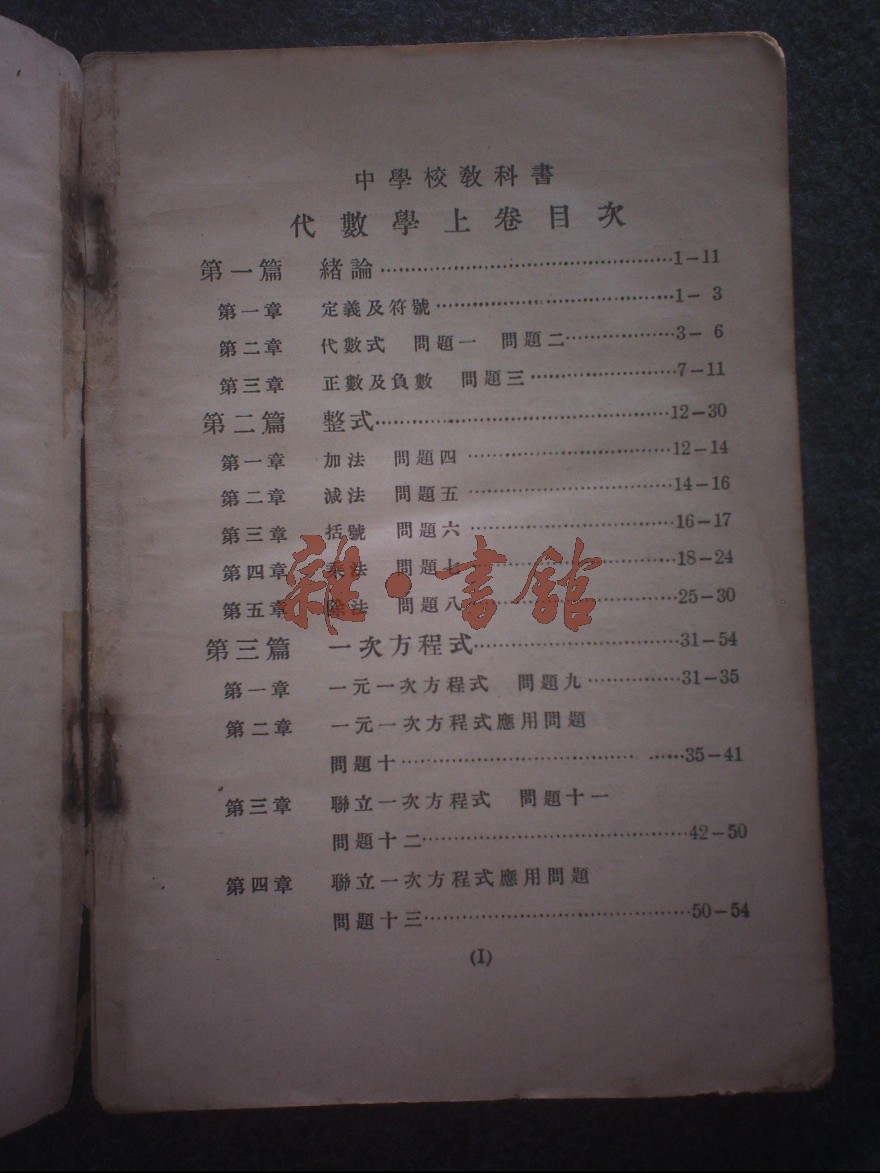 中學校敎科書
代數學上卷目次
第一篇 緒論……………………………………1-11
第一章 定義及符號……………………………1- 3
第二章 代數式 問題一 問題二……………3- 6
第三章 正數及負數 問題三…………………7-11
第二篇 整式……………………………………12-30
第一章 加法 問題四…………………………12-14
第二章 減法 問題五…………………………14-16
第三章 括號 問題六…………………………16-17
第四章 乘法 問題七…………………………18-24
第五章 除法 問題八…………………………25-30
雜·書館
第三篇 一次方程式……………………………31-54
第一章 一元一次方程式 問題九……………31-35
第二章 一元一次方程式應用問題
問題十……………………………… ……35-41
第三章 聯立一次方程式 問題十一
問題十二…………………………………42-50
第四章 聯立一次方程式應用問題
問題十三…………………………………50-54
(I)